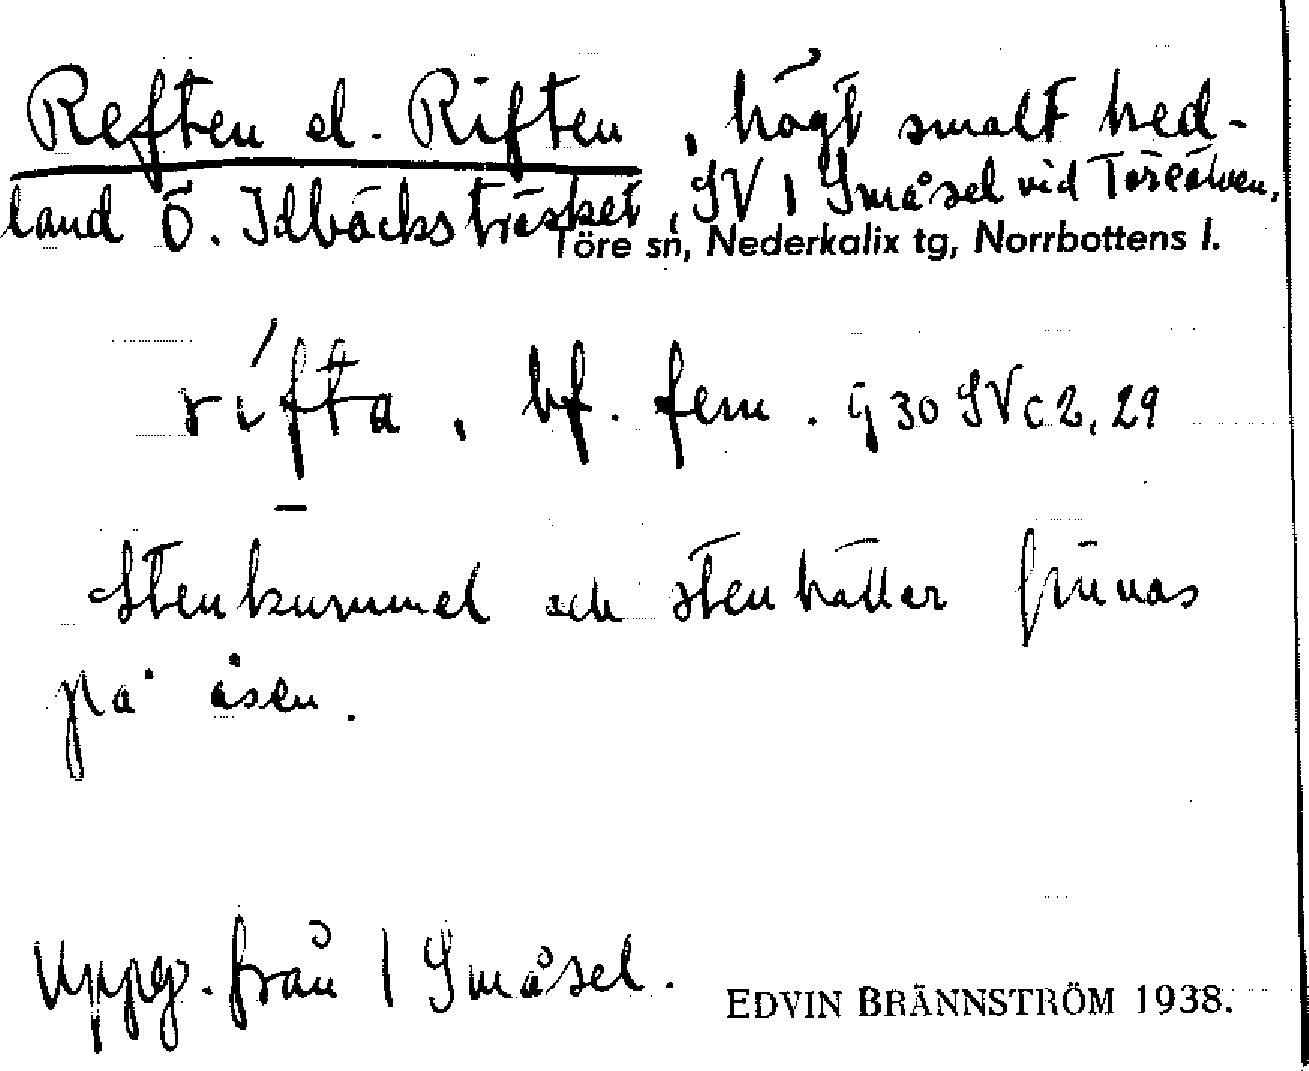 Reften el. Riften, högt smalt hed-
land Ö. Idbäcksträsket, SV 1 Småsel vid Töreälven.
Töre sn, Nederkalix tg, Norrbottens l.
rífta, bf. fem. g 30 SV c 2, 29
Stenkummel och stenhällar finnas
på åsen.
Uppg. från 1 Småsel.
EDVIN BRÄNNSTRÖM 1938.